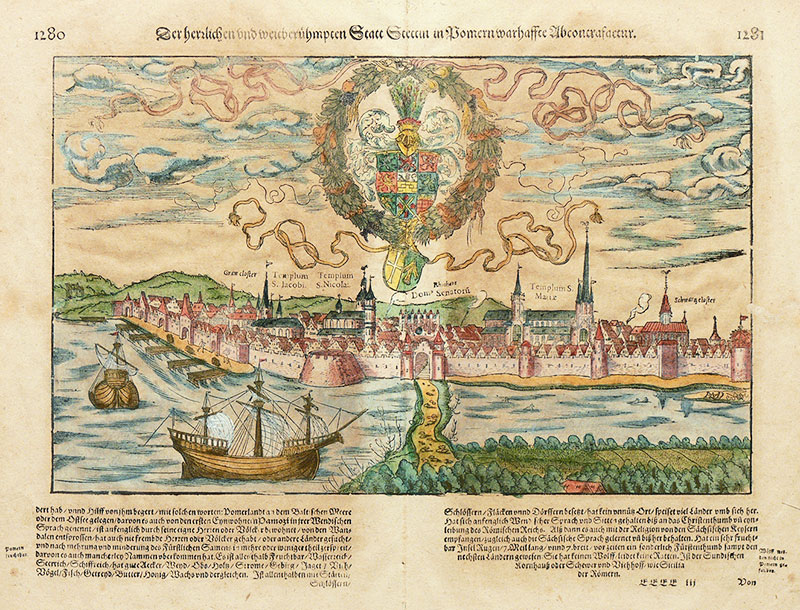 1280
Der herrlichen vnd weitberühmpten Statt Stettin in Pomern warhaffte Abcontrafactur.
1281
Graw closter
Templum
S. Jacobi.
Templum
S. Nicolai.
Rhathaus
Dom⁹ Senatoru
Templum S.
Mariæ
Schwartz closter
dert hab / vnnd Hilff von jhm begert / mit solchen worten: Pomerland an dem Baltischen Meere
oder dem Ostsee gelegen / darvon es auch von den ersten Eynwohnern Pamorzi in jrer Wendischen
Sprach genennt / ist anfenglich durch seine eigne Herren oder Völck r bewohnet / von den Wan-
dalen entsprossen / hat auch nie frembde Herren oder Völcker gehabt / oder andere Länder gesucht /
vnd nach mehrung vnd minderung deß Fürstlichen Samens in mehr oder weniger theil zerspalten /
darvon es auch mancherley Nammen vberkommen hat. Es ist allenthalb Fruchtbar / Wasserreich /
Seereich / Schiffreich / hat gute Aecker / Weyd / Obs / Holtz / Ströme / Gebirg / Jaget / Vich /
Vögel / Fisch / Getreyd / Butter / Honig / Wachs vnd dergleichen. Ist allenthalben mit Stätten /
Schlössern /
Pomern
fruchtbar.
Schlössern / Fläcken vnnd Dörffern besetzt / hat kein vnnütz Ort / speiset viel Länder vmb sich her.
Hat sich anfenglich Wendischer Sprach vnd Sitten gehalten biß an das Christenthumb vñ eyn-
leibung des Römischen Reichs. Als dann es auch mit der Religion von den Sächsischen Keysern
empfangen / zugleich auch die Sächsische Sprach gelernet vñ bißher behalten. Hat ein sehr frucht-
bar Insel Rugen / 7. Meil lang / vnnd 7. breit / vor zeiten ein sonderlich Fürstenthumb sampt den
nechsten Ländern gewesen Sie hat keinen Wolff / leidet keine Ratten. Ist der Sundischen
Kornhauß oder Schewer vnd Viehhoff / wie Sicilia
der Römern.
EEEE iij
Von